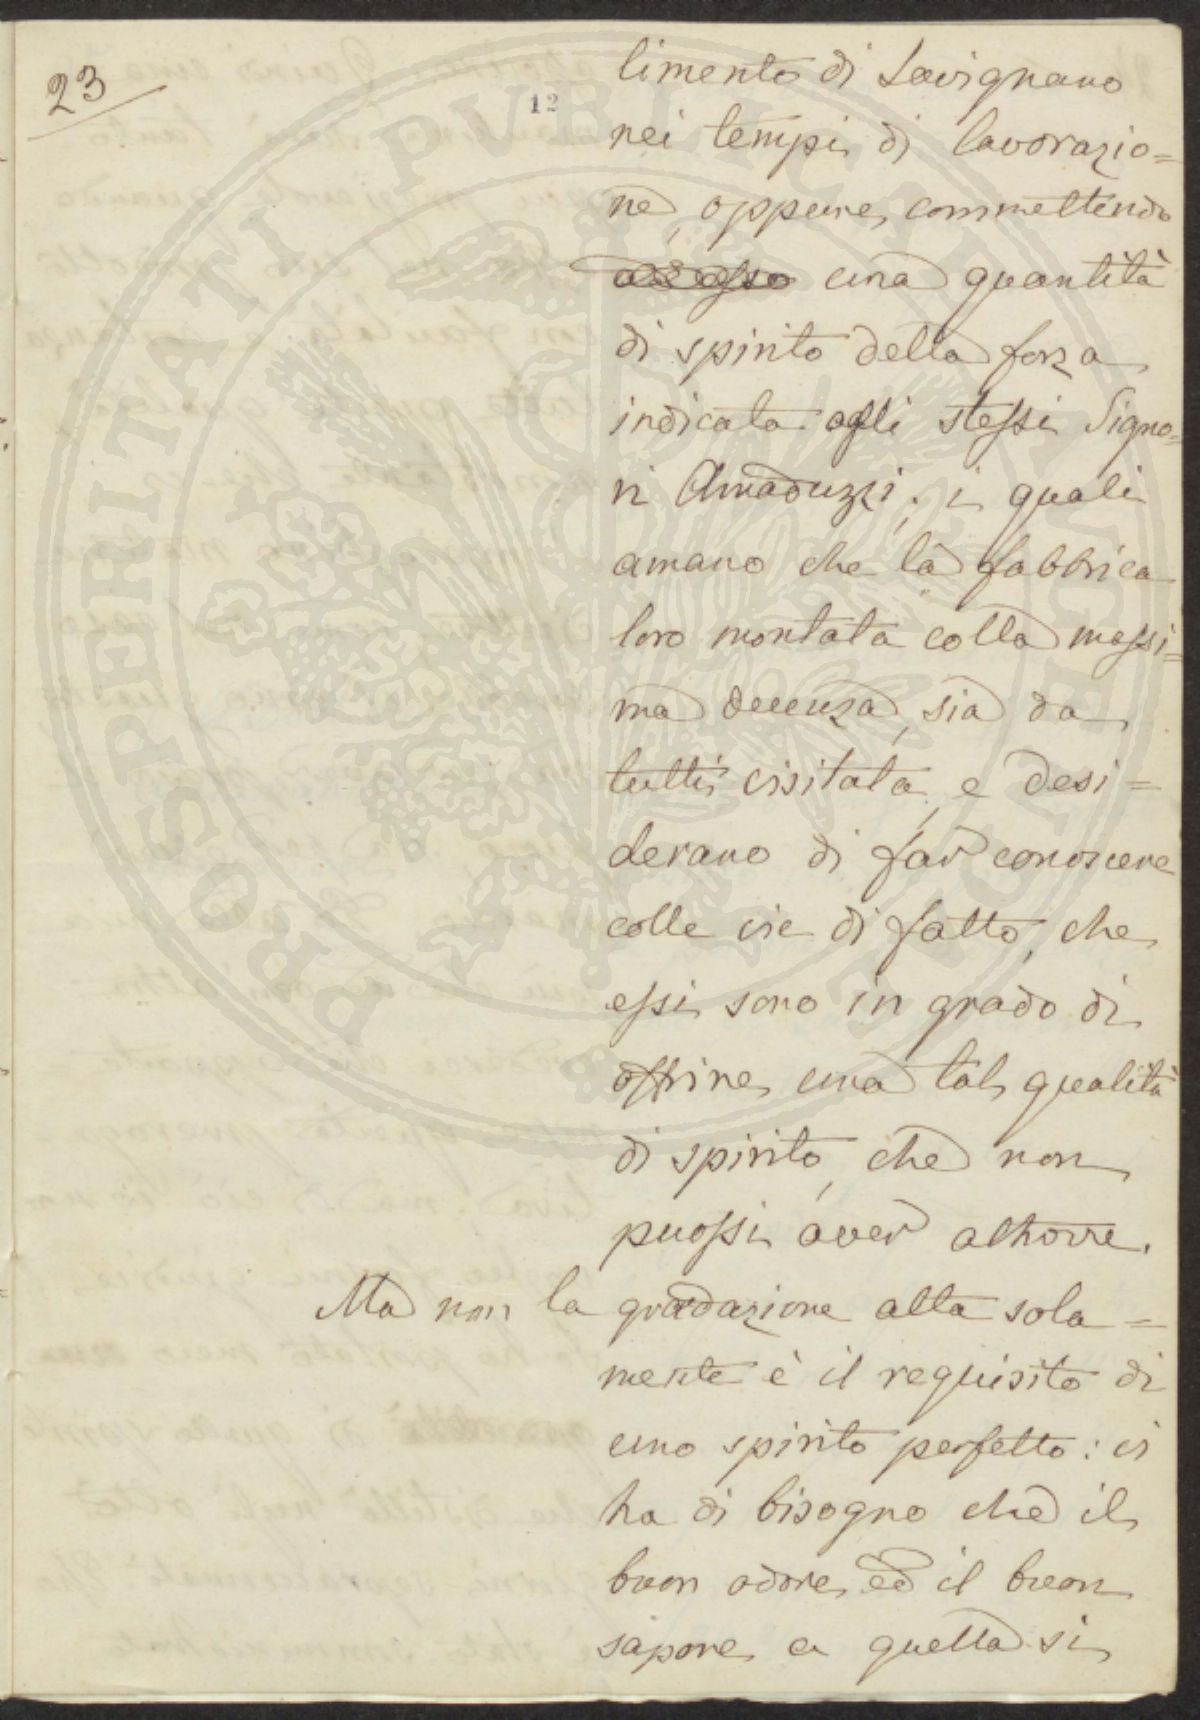 23
12
limento di Savignano
nei tempi di lavorazio=
ne, oppure, commettendo
una quantità
di spirito della forza
indicata agli stessi Signo=
ri Amaduzzi; i quali
amano che la fabbrica
loro montata colla massi=
ma decenza, sia da
tutti visitata, e desi=
derano di far conoscere
colle vie di fatto, che
essi sono in grado di
offrire una tal qualità
di spirito, che non
puossi aver altrove.
Ma non la gradazione alta sola=
mente è il requisito di
uno spirito perfetto: vi
ha di bisogno che il
buon odore, ed il buon
sapore a quella si
PROSPERITATI PUBLICAE